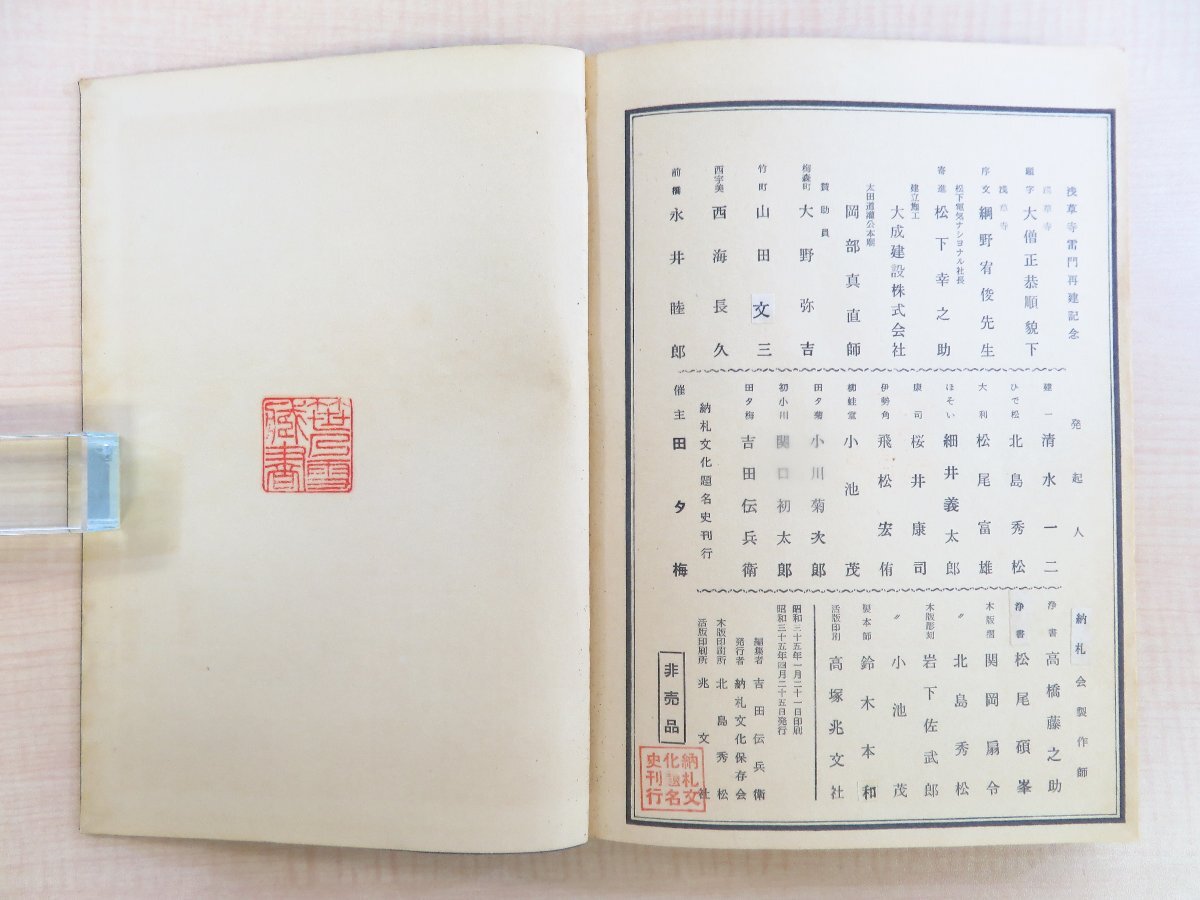 浅草寺雷門再建記念
題字 浅草寺 大僧正恭順貌下
序文 浅草寺 綱野宥俊先生
寄進 松下電気ナシヨナル社長 松下幸之助
建立施工 大成建設株式会社
太田道灌公本廟 岡部真直師
賛助員
梅森町 大野弥吉
竹町 山田文三
西宇美 西海長久
前橋 永井睦郎
発起人
建一 清水一二
ひで松 北島秀松
大利 松尾富雄
ほそい 細井義太郎
康司 桜井康司
伊勢角 飛松宏侑
柳蛙堂 小池茂
田夕菊 小川菊次郎
初小川 関口初太郎
田夕梅 吉田伝兵衛
納札文化題名史刊行
催主 田夕梅
納札会製作師
浄書 高橋藤之助
浄書 松尾碩峯
木版摺 関岡扇令
〃 北島秀松
木版彫刻 岩下佐武郎
〃 小池茂
製本師 鈴木本和
活版印刷 高塚兆文社
昭和三十五年一月二十一日印刷
昭和三十五年四月二十五日発行
編集者 吉田伝兵衛
発行者 納札文化保存会
木版印刷所 北島秀松
活版印刷所 兆文社
非売品
納札文
化題名
史刊行